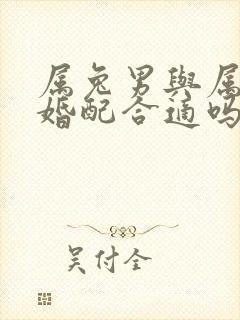 属兔男與属
婚配合適吗
吴付全